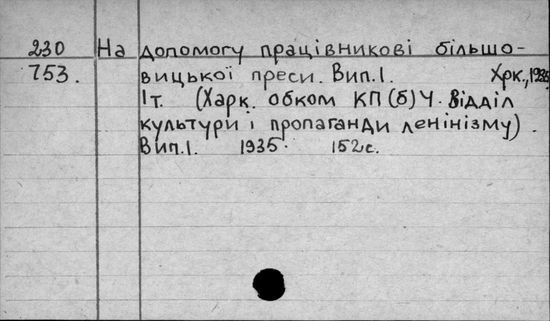 230 На допомогу працівникові більшо-
753. вицької преси. Вип.1. Хрк., 1935.
1т. (Харк. обком КП(б)У. Відділ
культури і пропаганди ленінізму).
Вип.1. 1935. 152с.